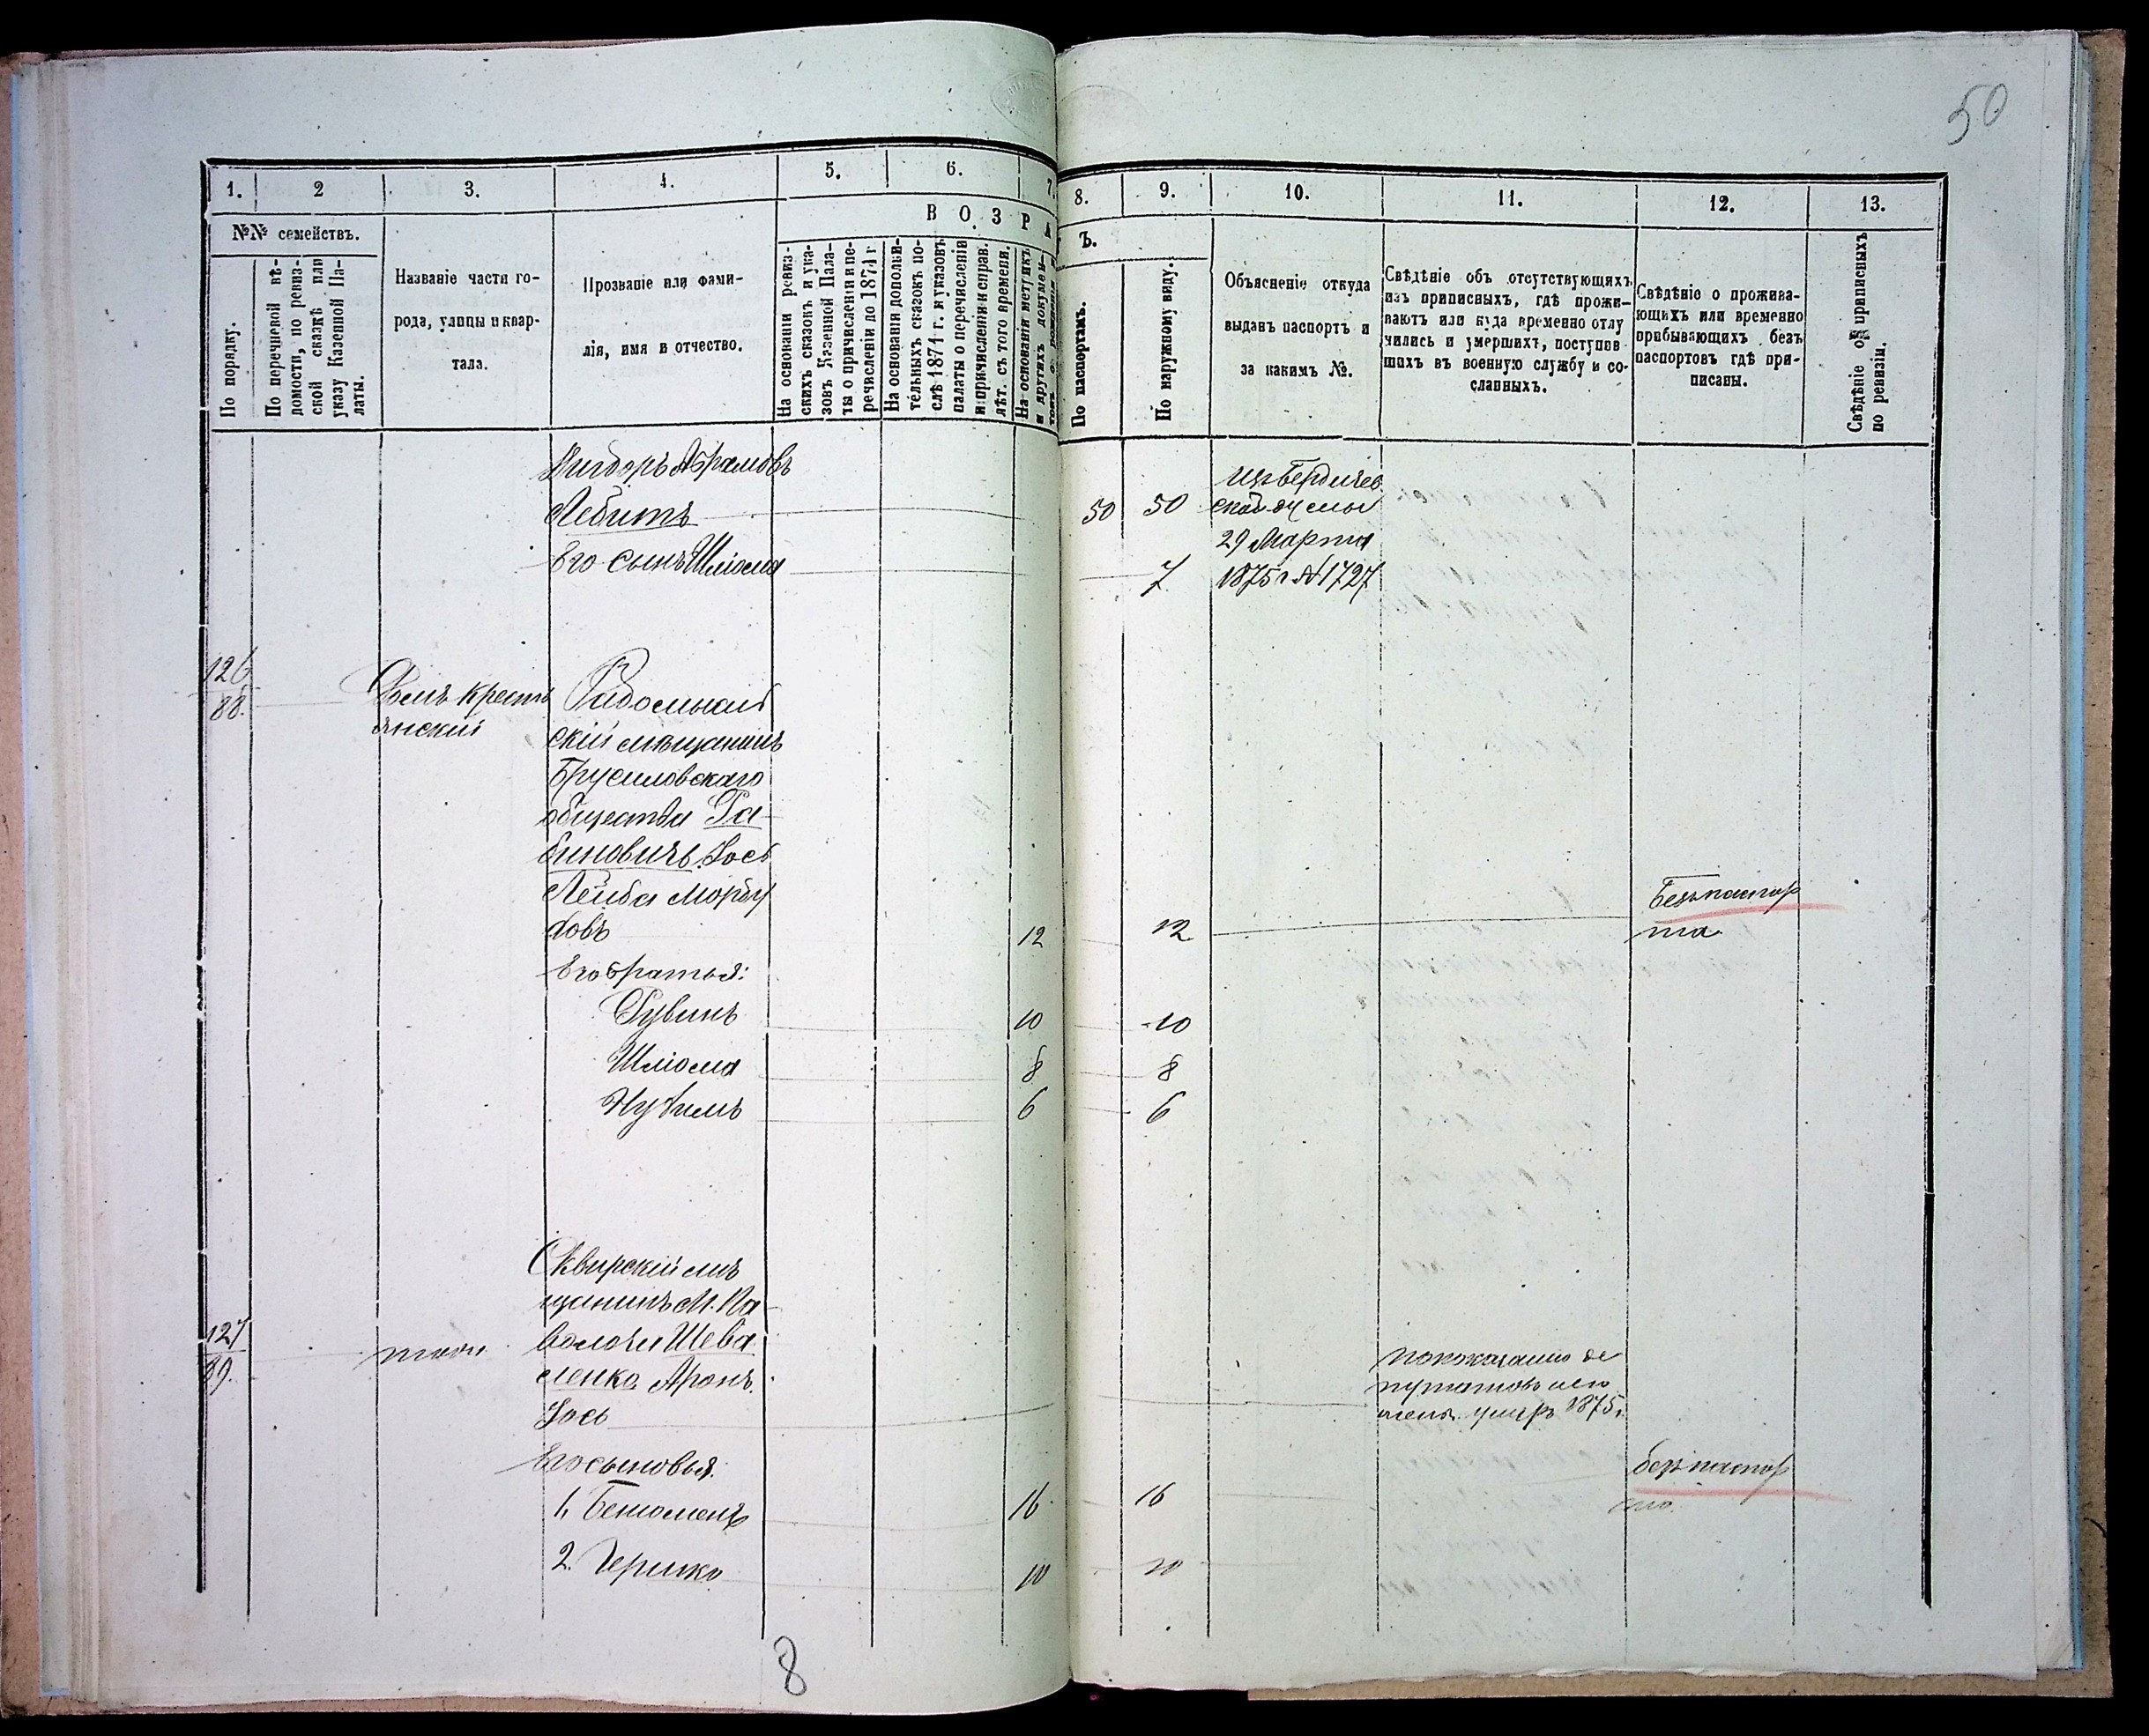 50
1.
2
3.
4.
5.
6.
7.
№№ семействъ.
По порядку.
По перечневой вѣ-
домости, по ревиз-
ской сказкѣ или
указу Казенной Па-
латы.
Названіе части го-
рода, улицы и квар-
тала.
Прозваніе или фами-
лія, имя и отчество.
В О З Р А
На основаніи ревиз-
скихъ сказокъ и ука-
зовъ Казенной Пала-
ты о причисленіи и пе-
речисленіи до 1874 г
На основаніи дополни-
тельныхъ сказокъ по-
слѣ 1874 г. и указовъ
палаты о перечисленіи
и причисленіи и справ.
лѣт. съ того времени.
На основаніи метрик.
и другихъ докумен-
8.
9.
10.
11.
12.
13.
Ъ.
По паспортамъ.
По наружному виду.
Объясненіе откуда
выданъ паспортъ и
за какимъ №.
Свѣдѣніе объ отсутствующихъ
изъ приписныхъ, гдѣ прожи-
ваютъ или куда временно отлу
чились и умершихъ, поступив
шихъ въ военную службу и со-
сланныхъ.
Свѣдѣніе о прожива-
ющихъ или временно
прибывающихъ безъ
паспортовъ гдѣ при-
писаны.
Свѣдѣніе о приписныхъ
по ревизіи.
Абрамовъ
50 50
29 Марта
Его сынъ Шліома
7 1875 г №1727
126
88.
Домъ кресть
янскій
Радомысль
скій мѣщанинъ
Брусиловскаго
общества Ра-
биновичъ Іось
Лейба Морду
ховъ 12 12
Безъ паспор
та
Его братья:
Рувинъ 10 10
Шліома 8 8
Нухимъ 6 6
Сквирскій мѣ
щанинъ М. Па-
127
89.
волочи Шева
ленко Аронъ
Іось
по показанію де
путатовъ
умеръ 1875 г.
Его сыновья:
1, 16 16
безъ паспор
та.
2. Гершко 10 10
8